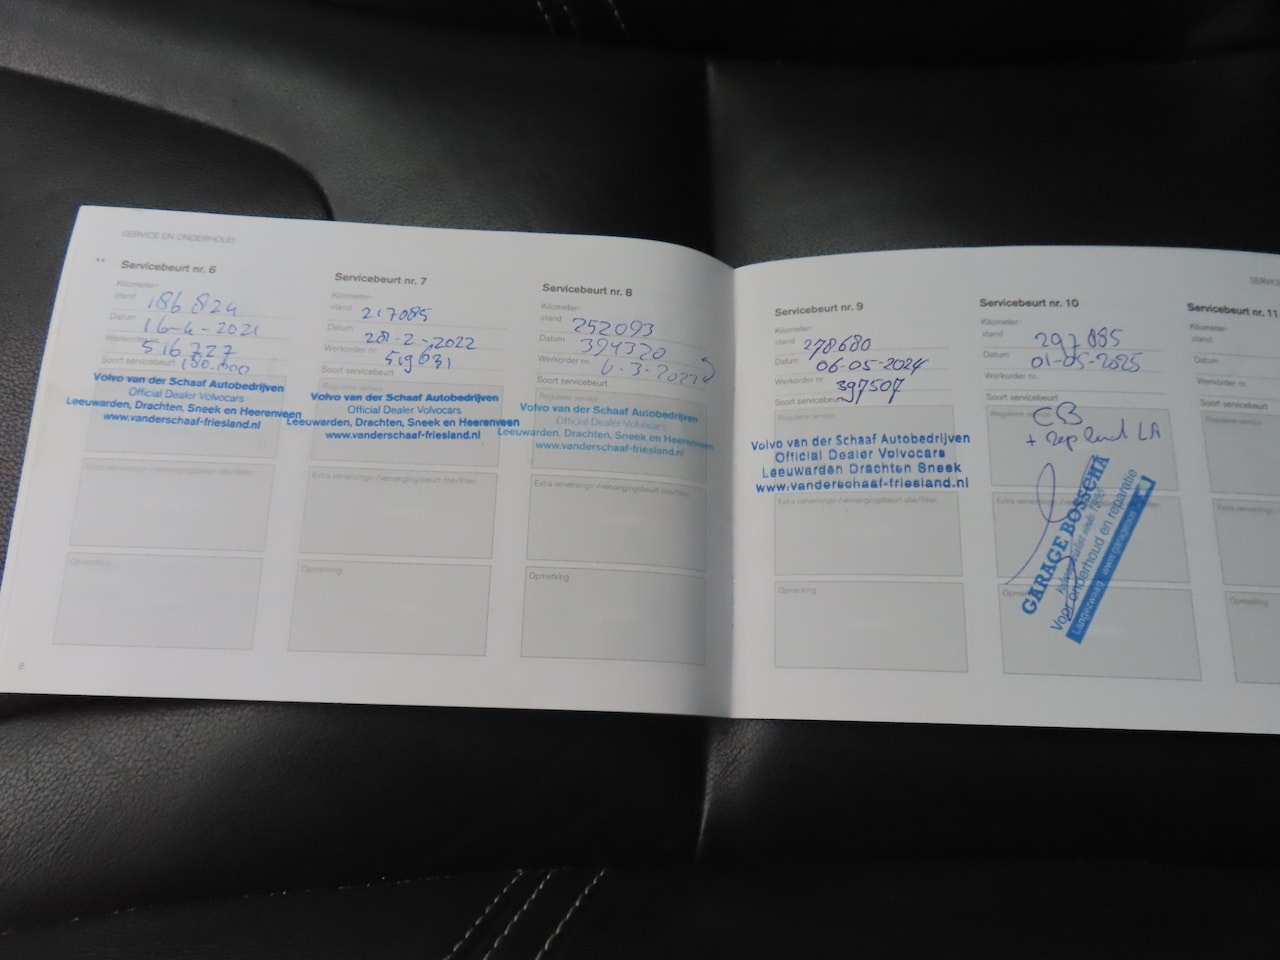 SERVICE EN ONDERHOUD
Servicebeurt nr. 6
Kilometer-
stand 186.824
Datum 16-4-2021
Werkorder nr. 516727
Soort servicebeurt 180.000
Volvo van der Schaaf Autobedrijven
Official Dealer Volvocars
Leeuwarden, Drachten, Sneek en Heerenveen
www.vanderschaaf-friesland.nl
Extra verversings-/vervangingsbeurt olie/filter:
Opmerking
8
Servicebeurt nr. 7
Kilometer-
stand 217085
Datum 28-2-2022
Werkorder nr. 519631
Soort servicebeurt
Reguliere service
Volvo van der Schaaf Autobedrijven
Official Dealer Volvocars
Leeuwarden, Drachten, Sneek en Heerenveen
www.vanderschaaf-friesland.nl
Extra verversings-/vervangingsbeurt olie/filter:
Opmerking
Servicebeurt nr. 8
Kilometer-
stand 252093
Datum 394320
Werkorder nr. 6-3-2023
Soort servicebeurt
Reguliere service
Volvo van der Schaaf Autobedrijven
Official Dealer Volvocars
Leeuwarden, Drachten, Sneek en Heerenveen
www.vanderschaaf-friesland.nl
Extra verversings-/vervangingsbeurt olie/filter:
Opmerking
Servicebeurt nr. 9
Kilometer-
stand 278680
Datum 06-05-2024
Werkorder nr. 397507
Soort servicebeurt
Reguliere service
Volvo van der Schaaf Autobedrijven
Official Dealer Volvocars
Leeuwarden Drachten Sneek
www.vanderschaaf-friesland.nl
Extra verversings-/vervangingsbeurt olie/filter:
Opmerking
Servicebeurt nr. 10
Kilometer-
stand 297885
Datum 01-05-2025
Werkorder nr.
Soort servicebeurt
Reguliere service
+ LA
GARAGE BOSSCHA
sinds 1955
Voor onderhoud en reparatie
Langezwaag
Servicebeurt nr. 11
Kilometer-
stand
Datum
Werkorder nr.
Soort servicebeurt
Reguliere service
Extra verversings-
Opmerking